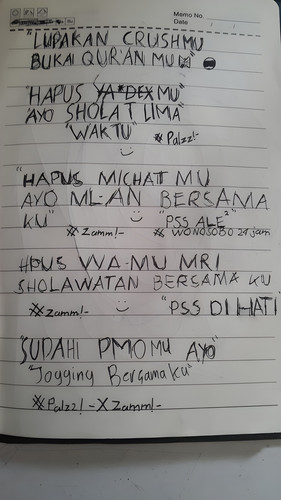 Memo No.
Date / /
"LUPAKAN CRUSHMU
BUKAI QUR'AN MU
"HAPUS YA*DEX MU"
AYO SHOLAT LIMA
"WAKTU"
# Palzz!-
"HAPUS MICHAT MU
AYO ML-AN BERSAMA
KU"
"PSS ALE²"
# Zamm!-
# WONOSOBO 24 jam
HPUS WA-MU MRI
SHOLAWATAN BERSAMA KU
# Zamm!-
"PSS DI HATI
"SUDAHI PMO MU AYO
"Jogging BergamaKu"
# Palzz!- X Zamm!-